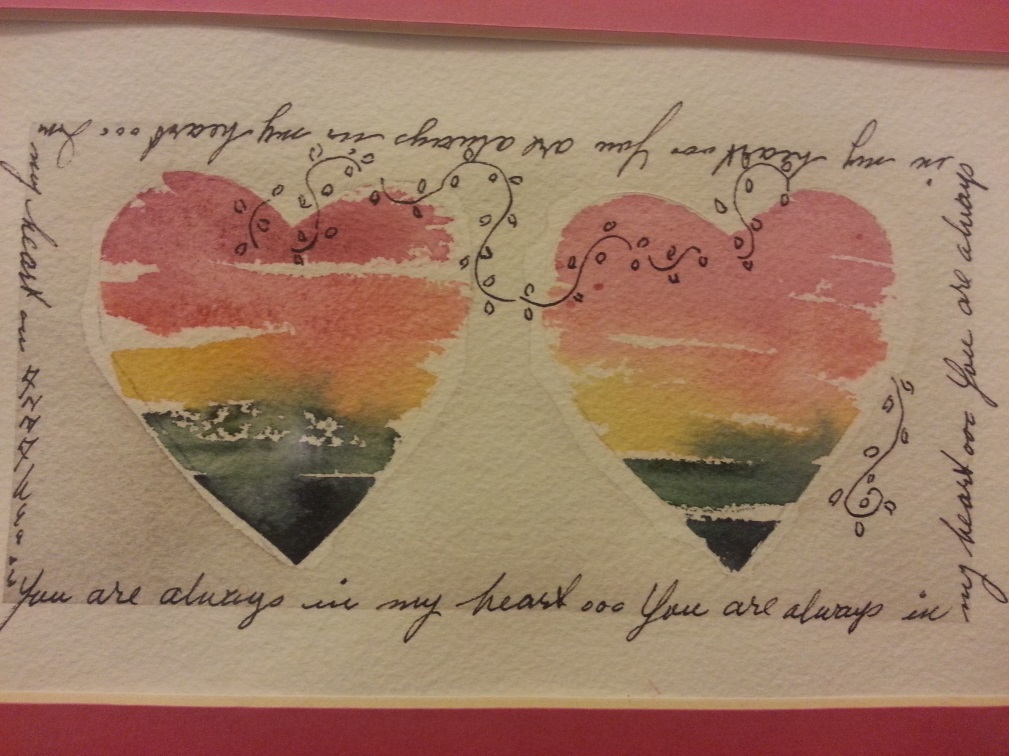 You are always in my heart ooo You are always in
my heart ooo You are always
in my heart ooo You are always in my heart ooo
in my heart